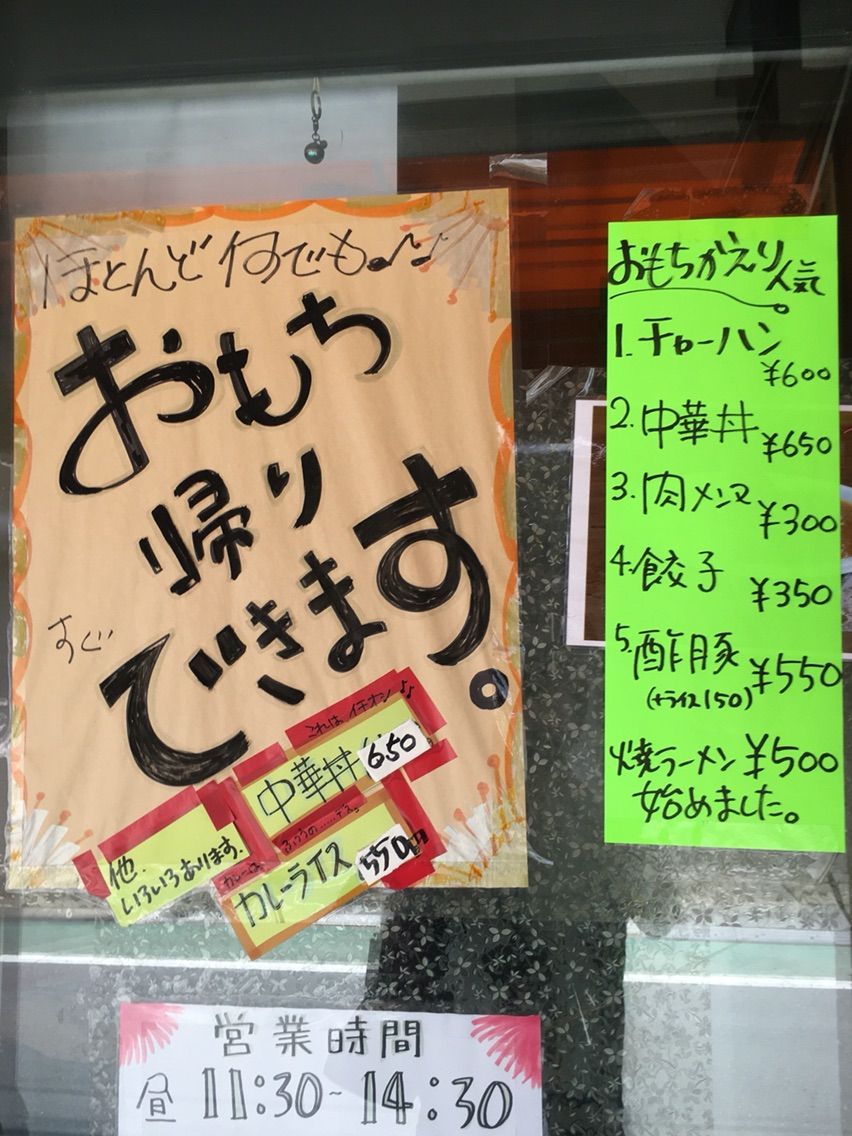 ほとんど何でも♪♪
おもち
帰り
すぐ
できます。
これは、イチオシ♪
中華丼 650
他、
いろいろあります。
カレーは、ふつうの……デス。
カレーライス 550円
おもちがえり人気
1.チャーハン
¥600
2.中華丼 ¥650
3.肉メンマ ¥300
4.餃子 ¥350
5.酢豚 ¥550
(+ライス150)
焼ラーメン ¥500
始めました。
営業時間
昼 11:30~14:30